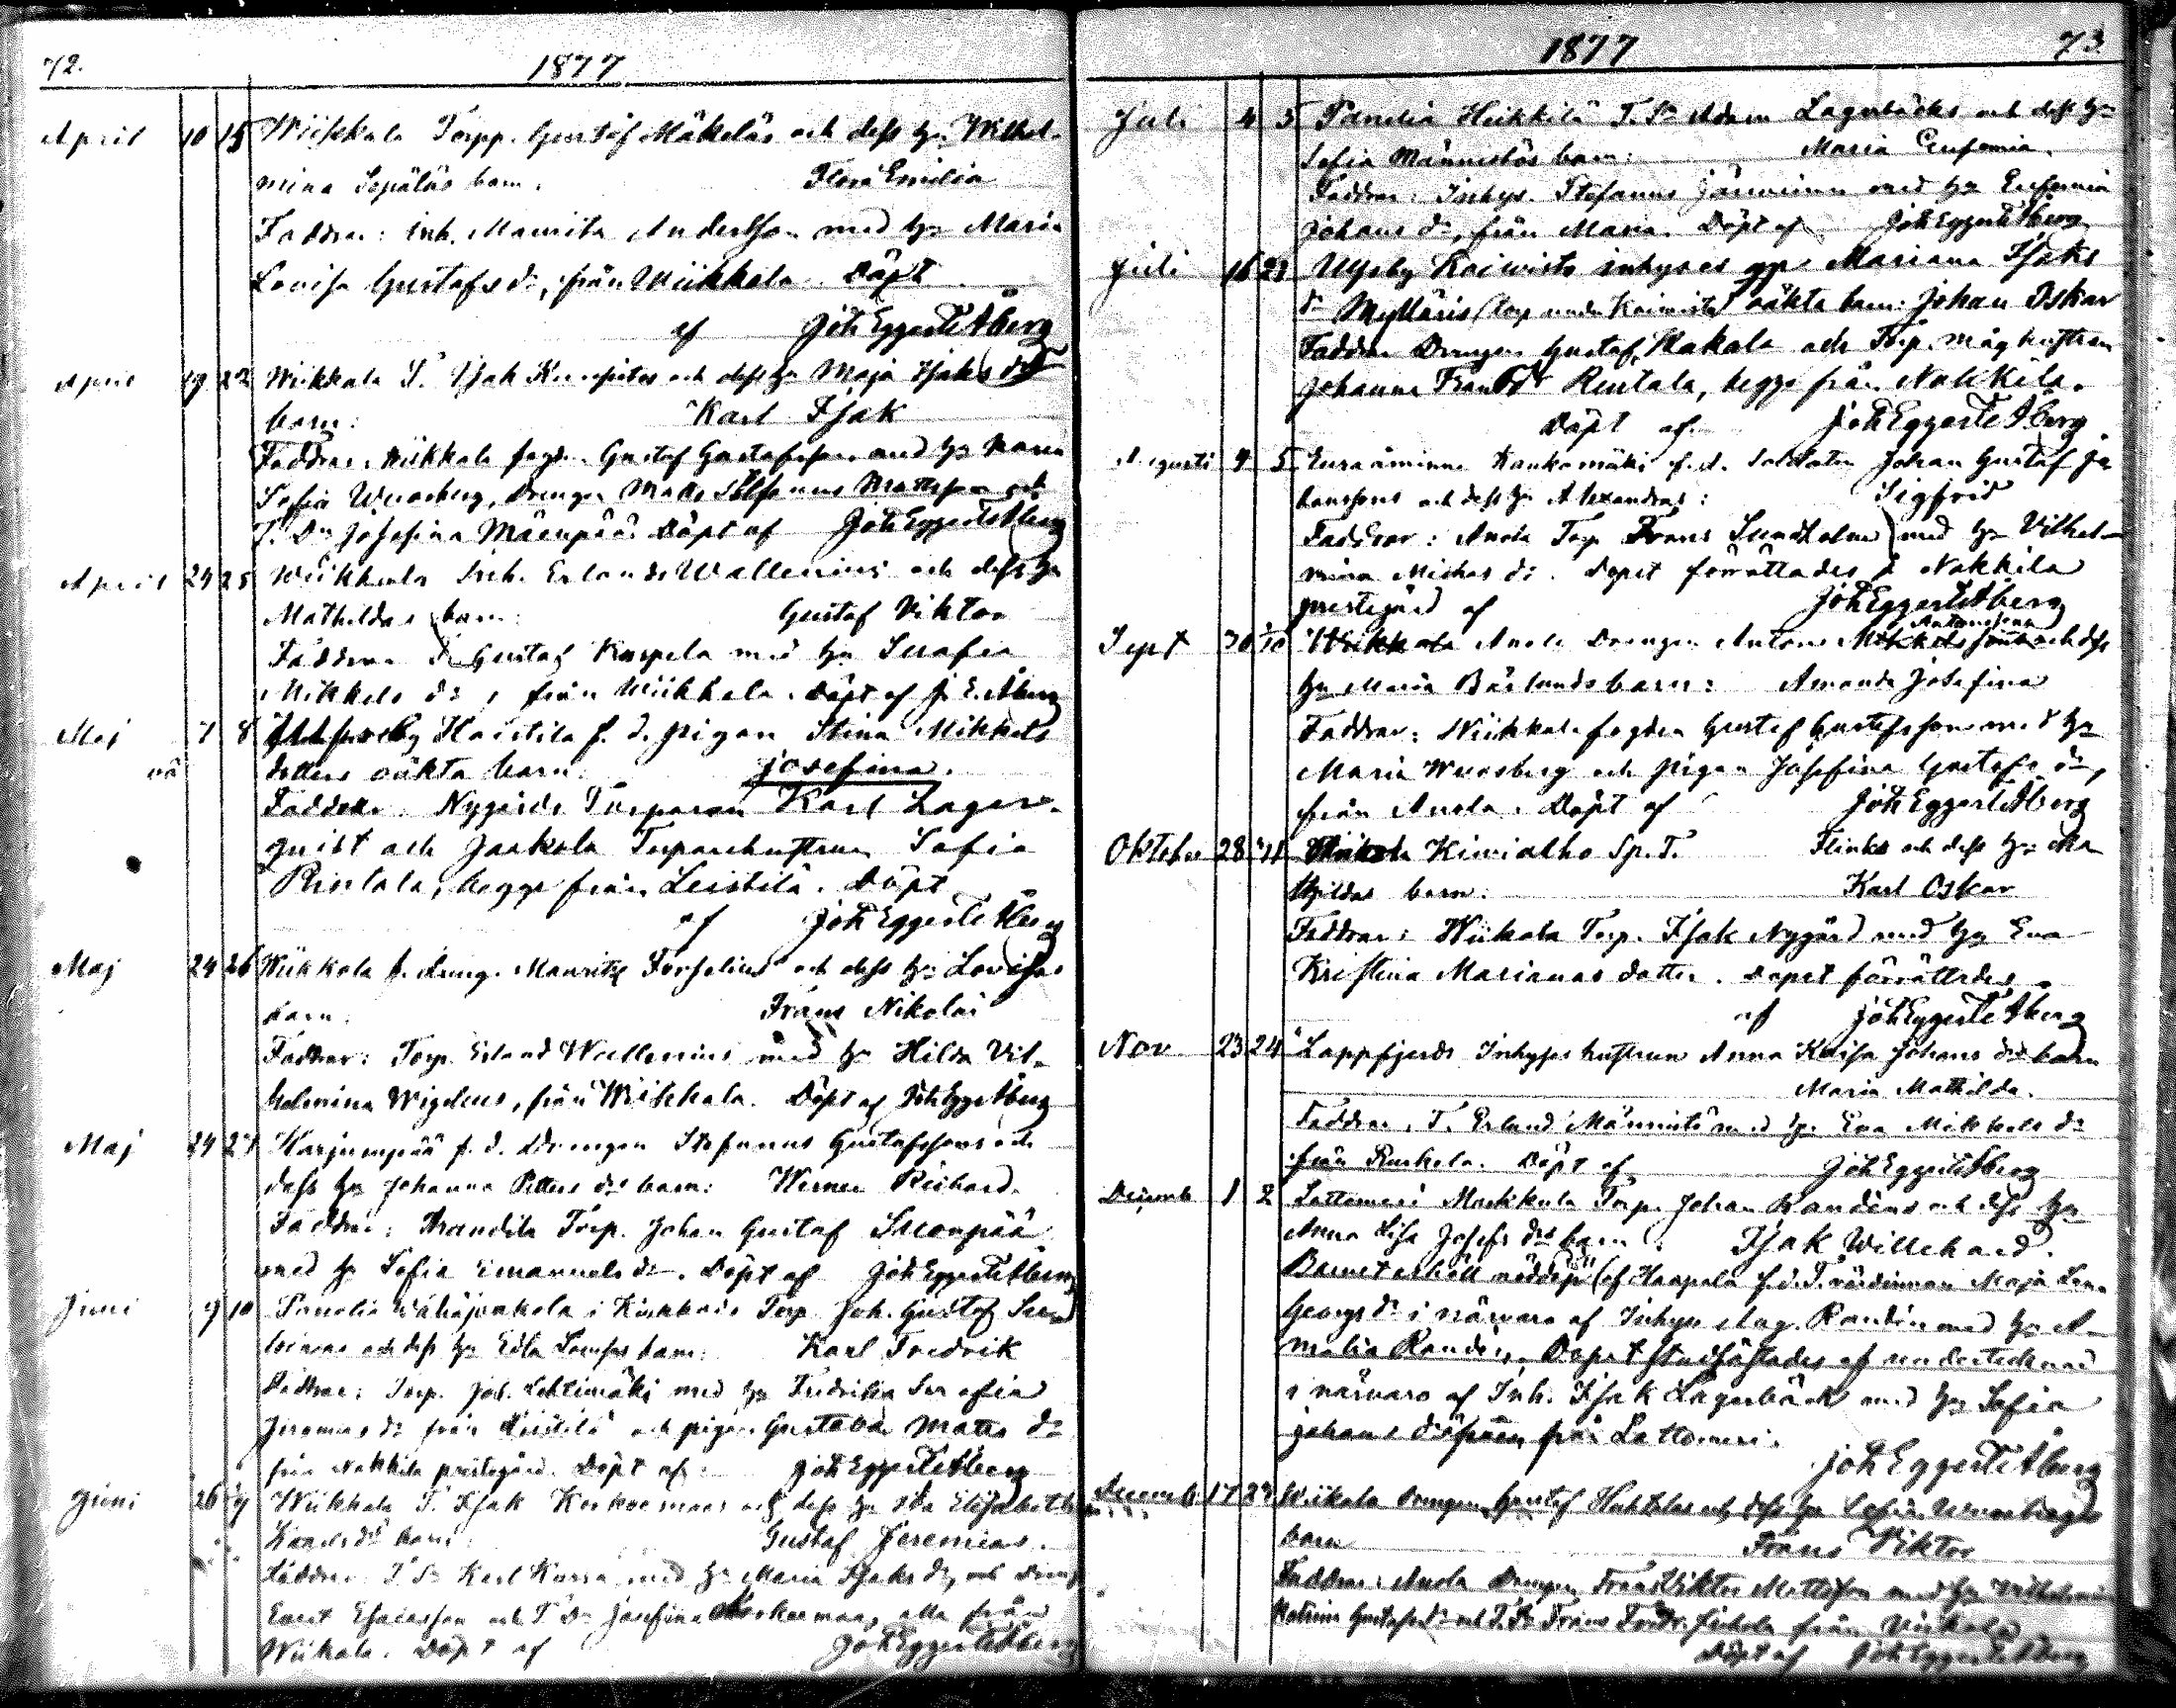 72.
1877
April 10 15 Wiikkala Torpp. Gustaf Mäkeläs och dess h. Wilhel-
mina Sepäläs barn. Flora Emilia
Faddrar: inh. Maurits Andersson med h. Maria
Lovisa Gustafs dr, från Wiikkala. Döpt
af Joh Eggert Åberg
April 19 22 Wiikkala T. Isak och dess h. Maja Isaks drs
barn: Karl Isak
Faddrar: Wiikkala fogd. Gustaf Gustafsson med h. Maria
Sofia Wuorberg, drengen Stefanus Mattsson och
T. Dr Josefina Mäenpää. Döpt af Joh Eggert Åberg
April 24 25 Wiikkala Inh. Erlands Wallenius och dess h.
Mathildas barn: Gustaf Viktor
Faddrar Gustaf Karpela med h. Serafia
Mikkels dr, från Wiikkala. Döpt af J. E. Åberg
Maj 7 8 Haistila f. d. pigan Stina Mikkels
oä dotters oäkta barn: Josefina.
Faddrar. Nygårds Torparen Karl Lager-
quist och Jaakola Torparehustrun Sofia
Rintala, begge från Leistilä. Döpt
af Joh Eggert Åberg
Maj 24 26 Wiikkala f. dreng. Mauritz Forselius och dess h. Lovisas
barn: Frans Nikolai
Faddrar: Torp. Erland Wallenius med h. Hilda Vil-
helmina Wigelius, från Wiikkala. Döpt af Joh Egg Åberg
Maj 24 27 Harjunpää f. d. drengen Stefanus Gustafssons och
dess h. Johanna Petters drs barn: Werner Richard.
Faddrar: Torp. Johan Gustaf
med h. Sofia Emanuels dr. Döpt af Joh Eggert Åberg
Juni 9 10 Panelia Torp. Joh. Gustaf
och dess h. Edla barn: Karl Fredrik
Faddrar: Torp. Joh. Lehtimäki med h. Fredrika Serafia
Jeremias dr från Leistilä och pigan Gustava Matts dr
från Nakkila prestegård. Döpt af Joh Eggert Åberg
Juni 26 Wiikkala T. Isak Korkeemaas och dess h. Eva Elisabeth
barn: Gustaf Jeremias.
Faddrar: T. Sn Karl med h. Maria Isaks dr, och Dreng
Esaiasson och T. Dr Josefina Korkeemaa, alla från
Wiikala. Döpt af Joh Eggert Åberg
1877
73.
Juli 4 5 Panelia Heikkilä T. Sn Adam Lagerbäcks och dess h.
Sofia Männistös barn: Maria Eufemia.
Faddrar: Inhys. Stefanus Jänninen med h. Eufemia
Johans dr, från Maria. Döpt af Joh Eggert Åberg
Juli 16 Ulfsby Koivisto inhyses Mariana Isaks
dr Mylläris (torp under Koivisto) oäkta barn: Johan Oskar
Faddrar Drengen Gustaf Kakala och Torp. måghustrun
Johanna Rintala, begge från Nakkila.
Döpt af Joh Eggert Åberg
Augusti 4 5 Euraåminne Kaukomäki f. d. soldaten Johan Gustaf Jo-
hanssons och dess h. Alexandras: Sigfrid
Faddrar: Anola Torp Frans Lundholm med h. Vilhel-
mina Mickes dr. Dopet förrättades i Nakkila
prestegård af Joh Eggert Åberg
Sept 30 Anola Drengen Antons Antonssons och dess
h. Maria Bärlunds barn: Amanda Josefina
Faddrar: Wiikkala fogden Gustaf Gustafsson med h.
Maria Wuorberg och pigan Josefina Gustafs dr,
från Anola. Döpt af Joh Eggert Åberg
Oktober 28 Kivialho Sp. T. Flinks och dess h. Ma-
thildas barn: Karl Oskar
Faddrar: Wiikala Torp. Isak Nygård med h. Eva
Kristina Marianas dotter. Dopet förrättades
af Joh Eggert Åberg
Nov 23 24 Lappfjerds Inhyses hustrun Anna Kaisa Johans drs barn
Maria Mathilda.
Faddrar. T. Erland Männistö med h. Eva Mikkels dr
från Ruskela. Döpt af Joh Eggert Åberg
Decemb 1 2 Lattomeri Torp. Johan Randens och dess h.
Anna Lisa Josefs drs barn: Isak Willehard.
Barnet erhöll nöddop af Haapala f. d. T. värdinnan Maja
Georgs dr i närvaro af Inhys Aug. Randen med h. A-
malia Randen. Dopet stadfästades af undertecknad
i närvaro af Inh. Isak Lagerbäck med h. Sofia
Johans dr från Lattomeri.
Joh Eggert Åberg
Decemb. 17 23 Wiikala Drengen Gustaf och dess h. Sofia Wuorbergs
barn Frans Viktor
Faddrar: Anola Drengen Frans Viktor Mattsson med h. Wilhelmina
Katrina Gustafs dr och T. Sn Frans från Wiikala
Döpt af Joh Eggert Åberg